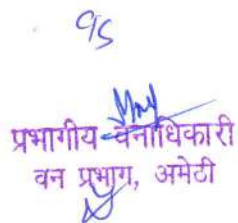 प्रभागीय वनाधिकारी
वन प्रभाग, अमेठी